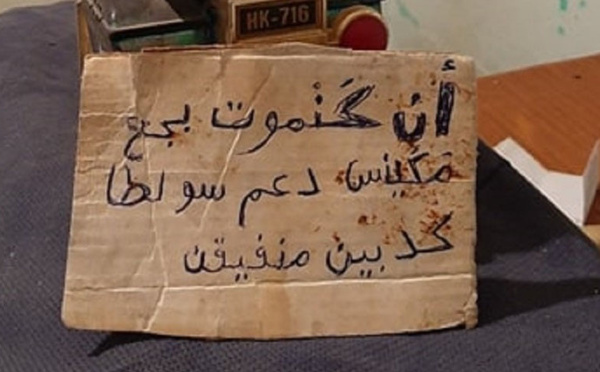 HK-716
أن كَنْموت بجع
مَكينس دعم سولطا
كدبين منفيقن